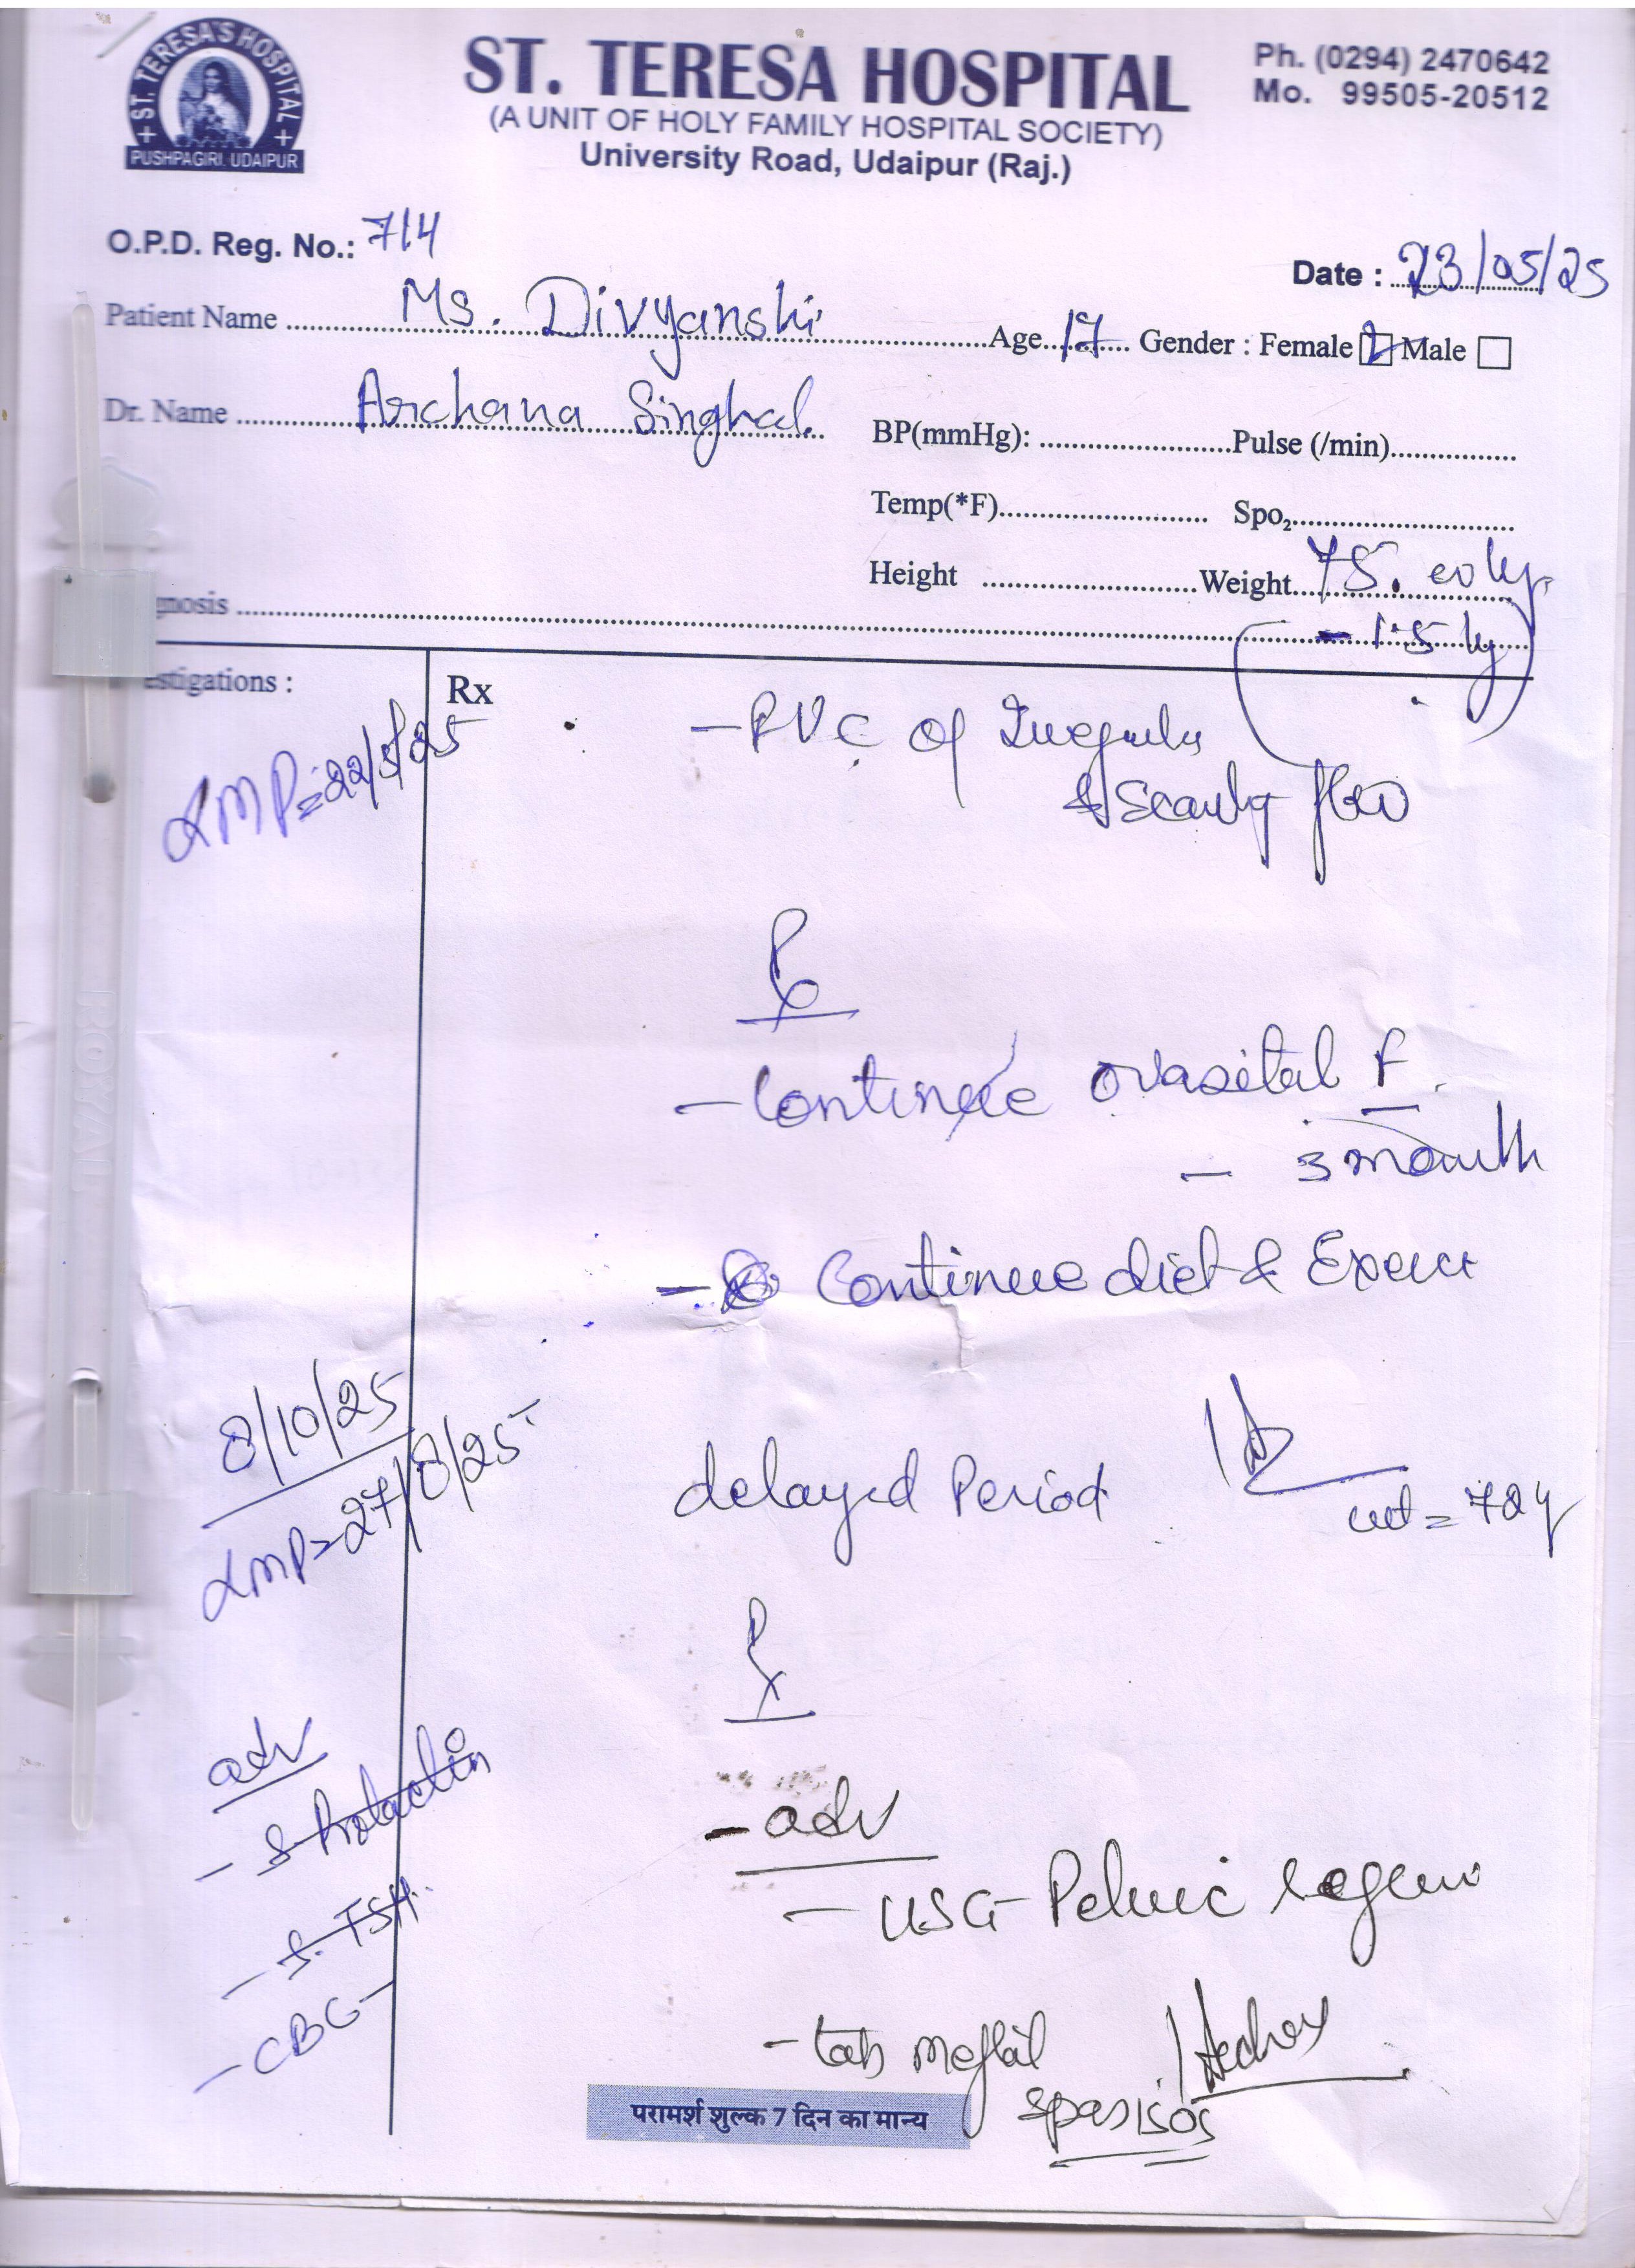 ST. TERESA'S HOSPITAL
PUSHPAGIRI, UDAIPUR
ST. TERESA HOSPITAL
(A UNIT OF HOLY FAMILY HOSPITAL SOCIETY)
University Road, Udaipur (Raj.)
Ph. (0294) 2470642
Mo. 99505-20512
O.P.D. Reg. No.: 714
Date : 23/05/25
Patient Name Ms. Divyanshi Age 17 Gender : Female Male
Dr. Name Archana Singhal.
BP(mmHg): Pulse (/min)
Temp(*F) Spo2
Height Weight 75.
gnosis - 1.5 kg
estigations :
Rx
LMP = 22/5/25
- of
& Scanty flow
Rx
- Continue ovasital F.
- 3 month
- Continue diet &
8/10/25
LMP > 27/8/25
delayed Period
wt = 72
Rx
adv
- S Prolactin
- S. TSH.
- CBC
- adv
- USG - Pelvic
- tab meftal
spas
SOS
परामर्श शुल्क 7 दिन का मान्य
ROYAL